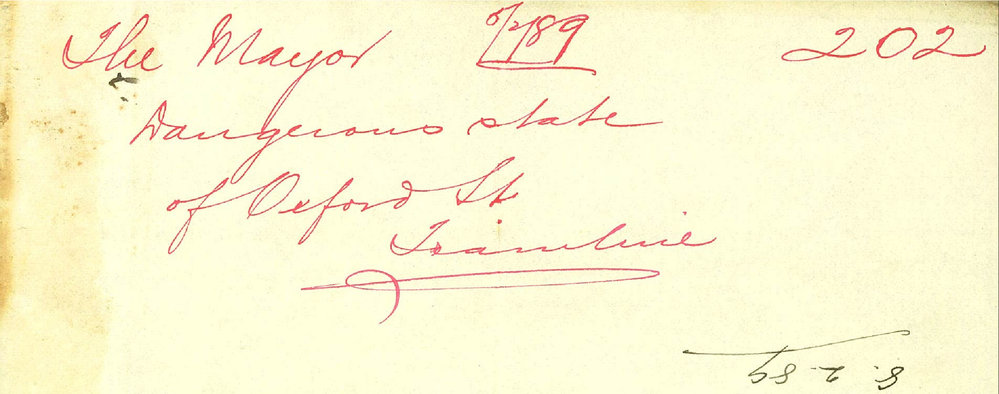 The Mayor 202
Dangerous state
of Oxford St
Tramline
8.2.89